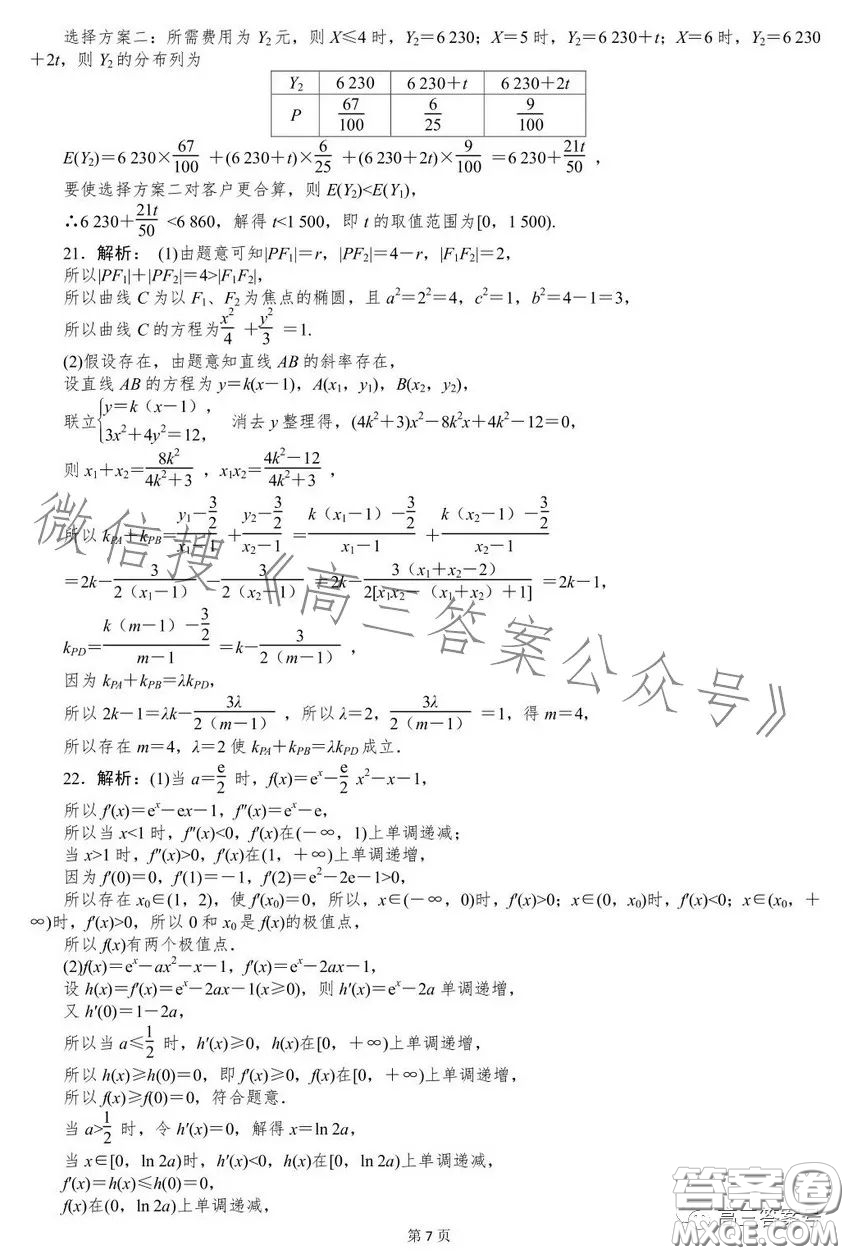 选择方案二：所需费用为 Y₂元，则 X≤4 时，Y₂=6 230；X=5 时，Y₂=6 230+t；X=6 时，Y₂=6 230
+2t，则 Y₂的分布列为
Y₂ 6 230 6 230+t 6 230+2t
P 67/100 6/25 9/100
E(Y₂)=6 230×67/100+(6 230+t)×6/25+(6 230+2t)×9/100=6 230+21t/50，
要使选择方案二对客户更合算，则 E(Y₂)<E(Y₁)，
∴6 230+21t/50<6 860，解得 t<1 500，即 t 的取值范围为[0，1 500).
21．解析： (1)由题意可知|PF₁|=r，|PF₂|=4-r，|F₁F₂|=2，
所以|PF₁|+|PF₂|=4>|F₁F₂|，
所以曲线 C 为以 F₁、F₂ 为焦点的椭圆，且 a²=2²=4，c²=1，b²=4-1=3，
所以曲线 C 的方程为x²/4+y²/3=1.
(2)假设存在，由题意知直线 AB 的斜率存在，
设直线 AB 的方程为 y=k(x-1)，A(x₁，y₁)，B(x₂，y₂)，
联立{y=k（x-1），3x²+4y²=12， 消去 y 整理得，(4k²+3)x²-8k²x+4k²-12=0，
则 x₁+x₂=8k²/(4k²+3)，x₁x₂=(4k²-12)/(4k²+3)，
所以 k_PA+k_PB=(y₁-3/2)/(x₁-1)+(y₂-3/2)/(x₂-1)=(k（x₁-1）-3/2)/(x₁-1)+(k（x₂-1）-3/2)/(x₂-1)
=2k-3/(2（x₁-1）)-3/(2（x₂-1）)=2k-3（x₁+x₂-2）/(2[x₁x₂-（x₁+x₂）+1])=2k-1，
k_PD=(k（m-1）-3/2)/(m-1)=k-3/(2（m-1）)，
因为 k_PA+k_PB=λk_PD，
所以 2k-1=λk-3λ/(2（m-1）)，所以 λ=2，3λ/(2（m-1）)=1，得 m=4，
所以存在 m=4，λ=2 使 k_PA+k_PB=λk_PD 成立．
22．解析：(1)当 a=e/2 时，f(x)=eˣ-e/2 x²-x-1，
所以 f′(x)=eˣ-ex-1，f″(x)=eˣ-e，
所以当 x<1 时，f″(x)<0，f′(x)在(-∞，1)上单调递减；
当 x>1 时，f″(x)>0，f′(x)在(1，+∞)上单调递增，
因为 f′(0)=0，f′(1)=-1，f′(2)=e²-2e-1>0，
所以存在 x₀∈(1，2)，使 f′(x₀)=0，所以，x∈(-∞，0)时，f′(x)>0；x∈(0，x₀)时，f′(x)<0；x∈(x₀，+
∞)时，f′(x)>0，所以 0 和 x₀ 是 f(x)的极值点，
所以 f(x)有两个极值点．
(2)f(x)=eˣ-ax²-x-1，f′(x)=eˣ-2ax-1，
设 h(x)=f′(x)=eˣ-2ax-1(x≥0)，则 h′(x)=eˣ-2a 单调递增，
又 h′(0)=1-2a，
所以当 a≤1/2 时，h′(x)≥0，h(x)在[0，+∞)上单调递增，
所以 h(x)≥h(0)=0，即 f′(x)≥0，f(x)在[0，+∞)上单调递增，
所以 f(x)≥f(0)=0，符合题意．
当 a>1/2 时，令 h′(x)=0，解得 x=ln 2a，
当 x∈[0，ln 2a)时，h′(x)<0，h(x)在[0，ln 2a)上单调递减，
f′(x)=h(x)≤h(0)=0，
f(x)在(0，ln 2a)上单调递减，
第 7 页
微信搜《高三答案公众号》
答案圈
MXQE.COM